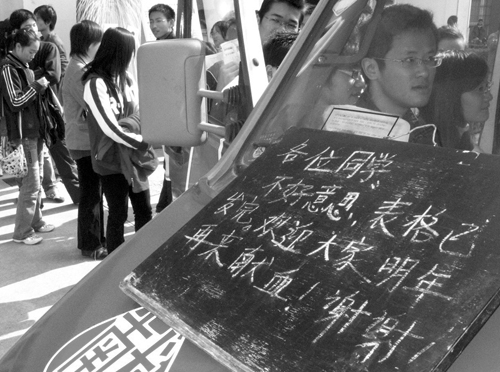 各位同学
不好意思，表格已
发完。欢迎大家明年
再来献血！谢谢！